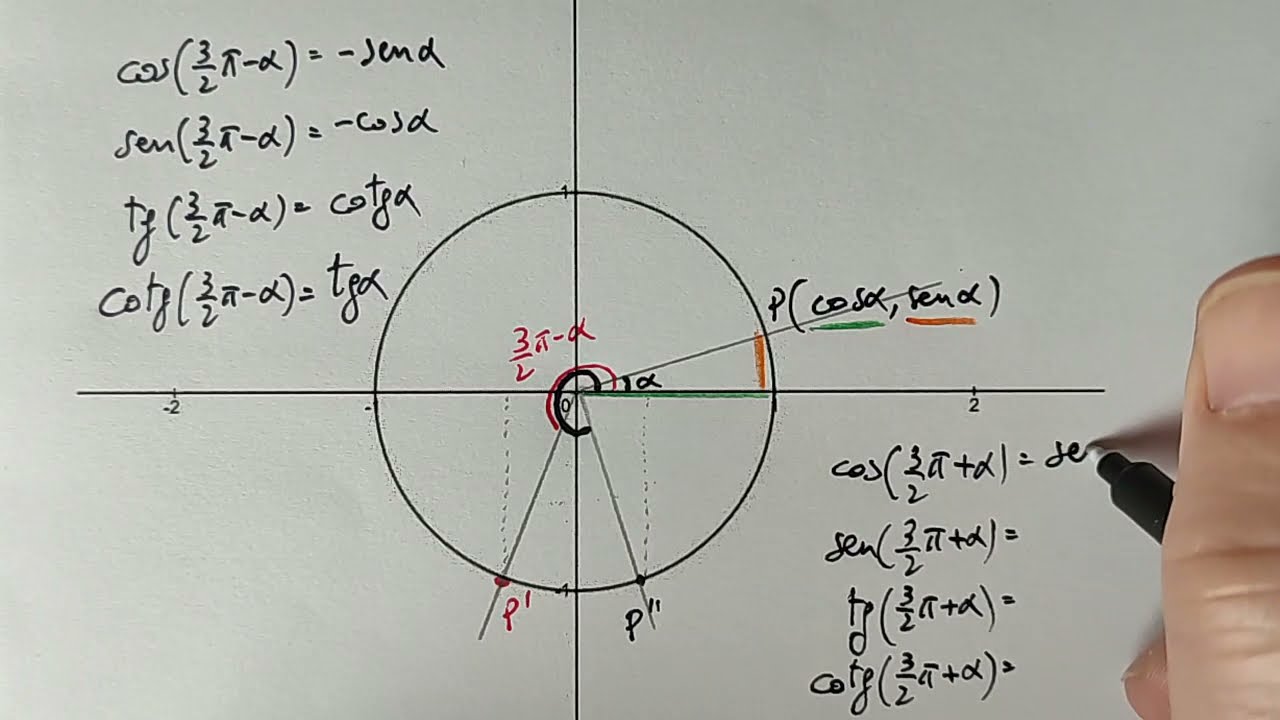 cos(3/2 π-α) = -senα
sen(3/2 π-α) = -cosα
tg(3/2 π-α) = cotgα
cotg(3/2 π-α) = tgα
1
P(cosα, senα)
3/2 π-α
α
-2
-
0
2
-1
P'
P''
cos(3/2 π+α) = se
sen(3/2 π+α) =
tg(3/2 π+α) =
cotg(3/2 π+α) =